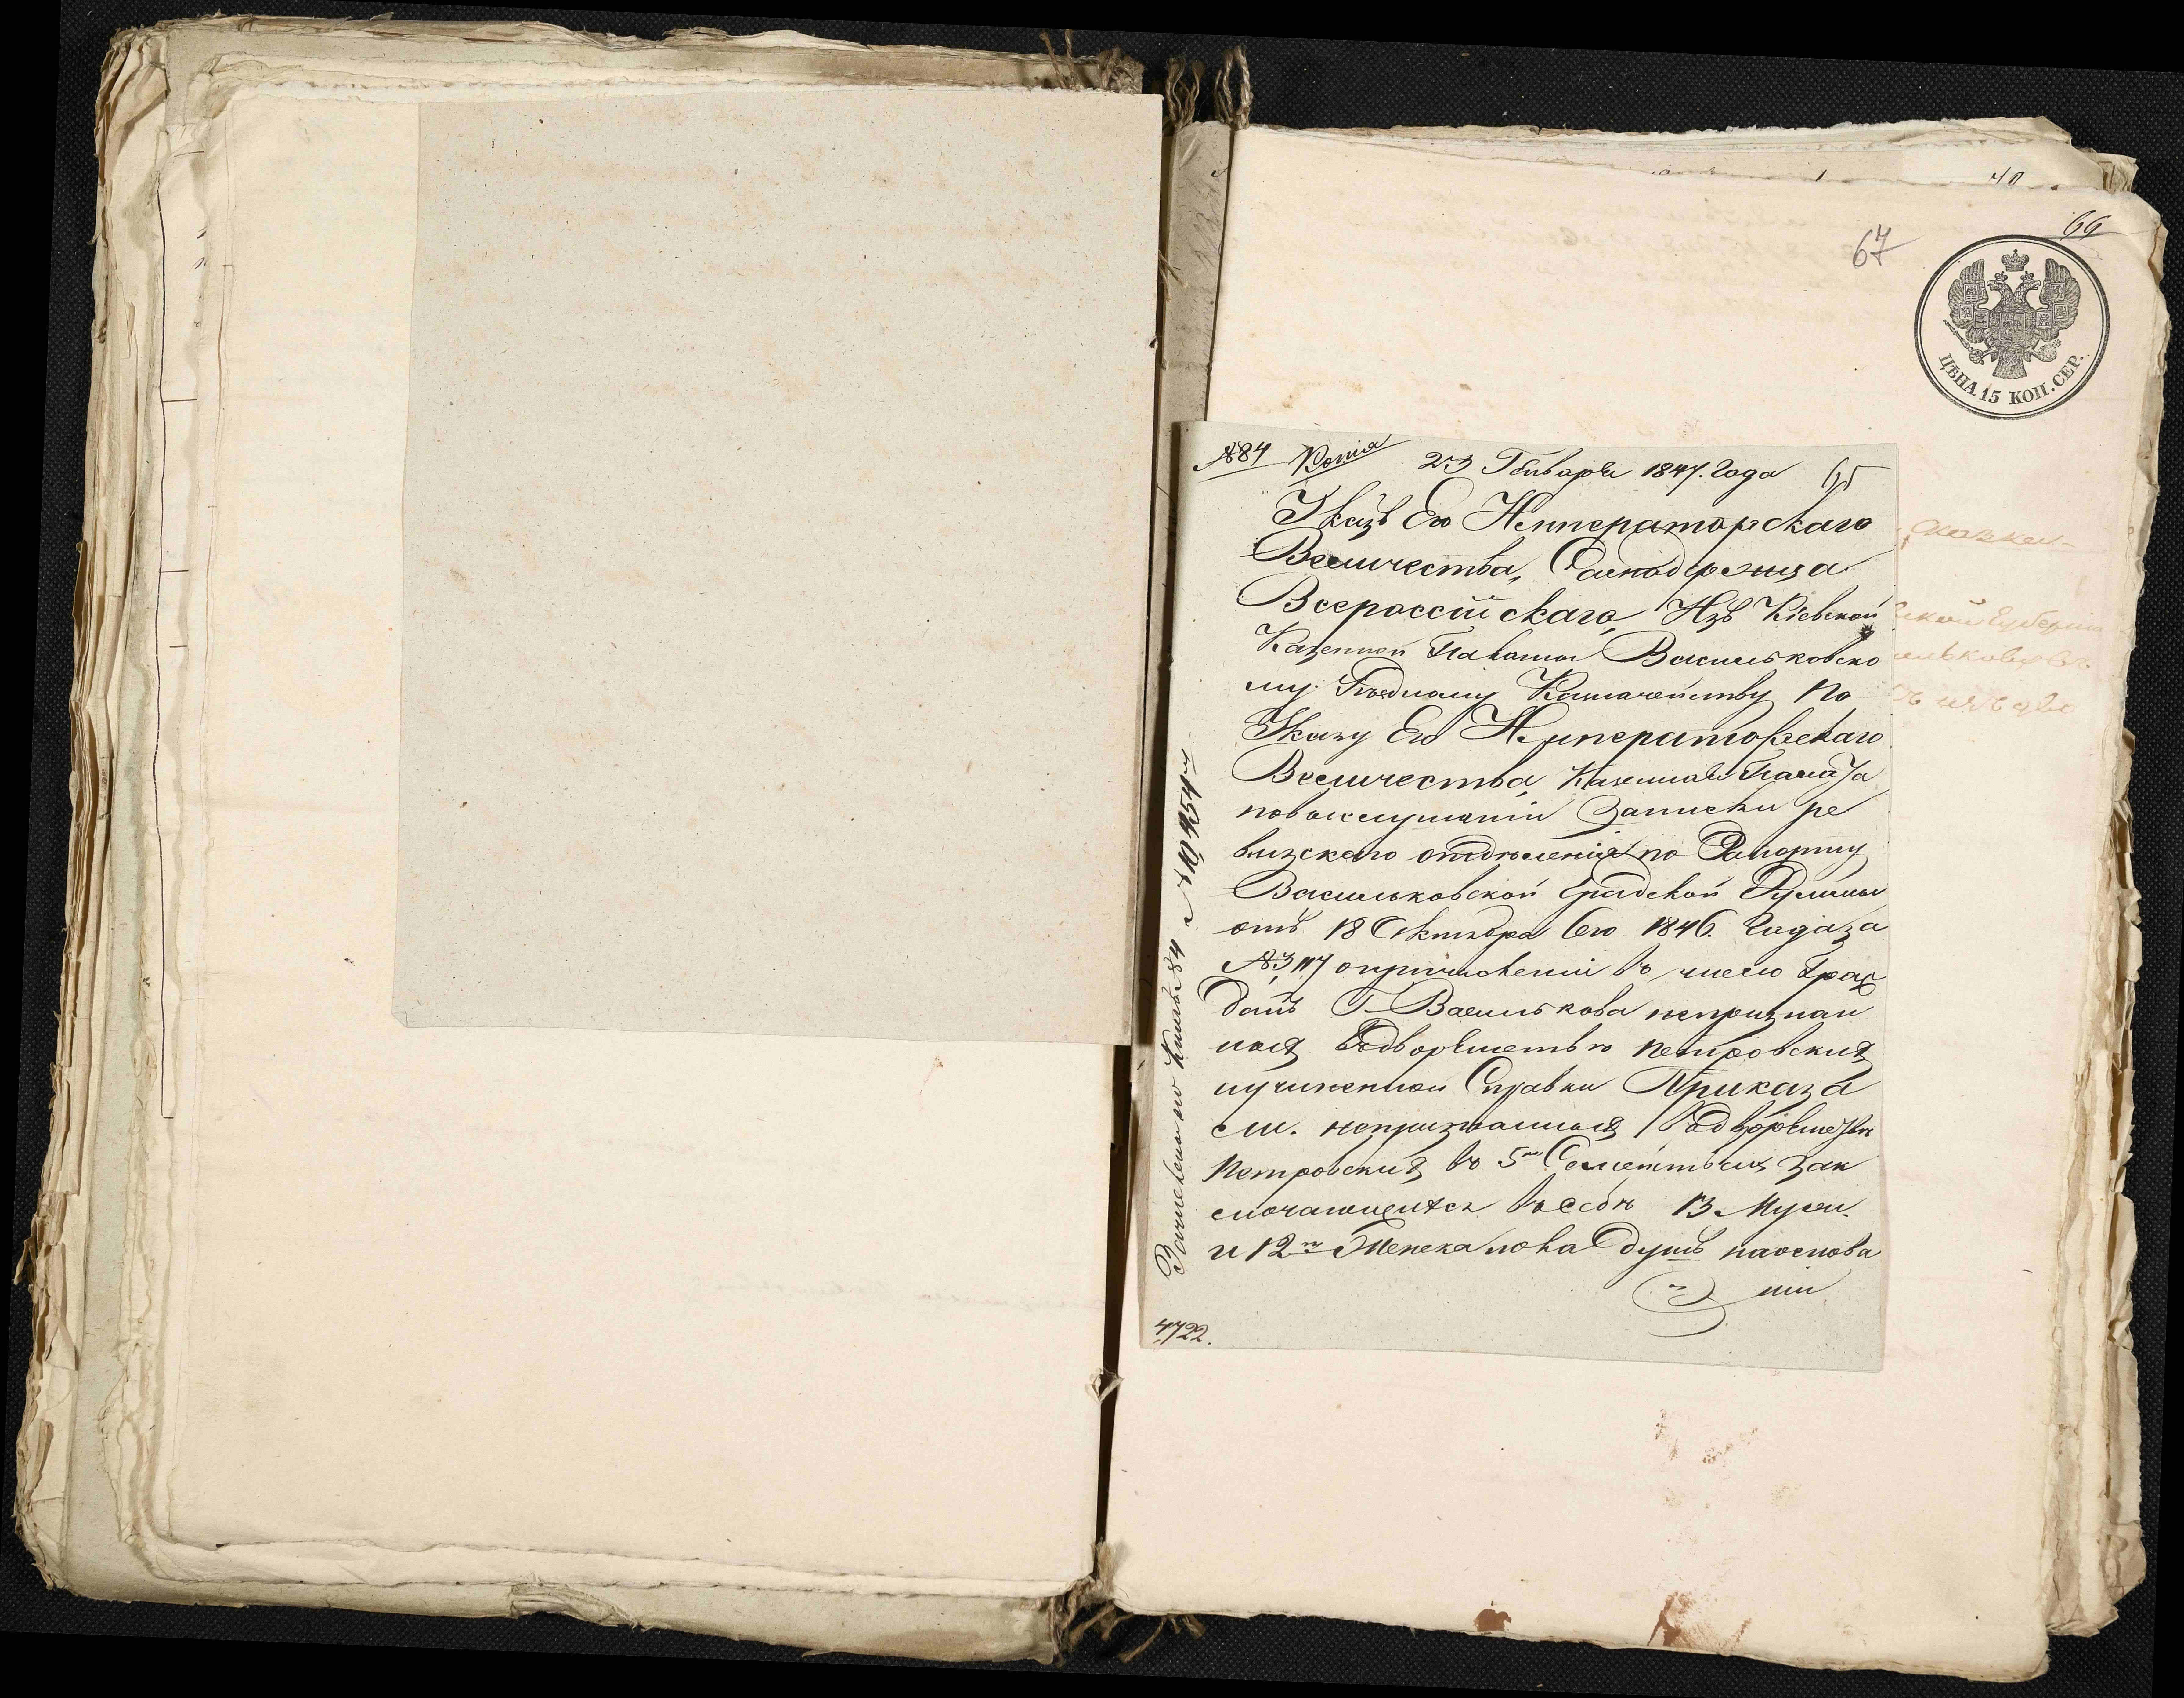 67
66
ЦѢНА 15 КОП. СЕР.
№84 Копія 23 Генваря 1847. Года 65
Указъ Его Императорскаго
Величества, Самодержца
Всероссійскаго, Изъ Кіевской
Казенной Палаты Васильковско
му Уѣздному Казначейству По
Указу Его Императорскаго
Величества, Казенная Палата
повыслушаніи Записки ре
визскаго отдѣленія по Рапорту
Васильковской Градской Думы
отъ 18 Октября 1846. Года за
№ 3,117 опричисленіи въ число Граж
данъ Г. Василькова непризнан
ныхъ Вдворянствѣ Петровскихъ
иучиненной Справки Приказа
ли. непризнанныхъ Вдворянствѣ
Петровскихъ въ 5ти Семействахъ зак
лючающихся всебѣ 13 Муж.
и 12ть Женска пола Душъ наоснова
ніи
Зачислено по Книгѣ 84
4722.